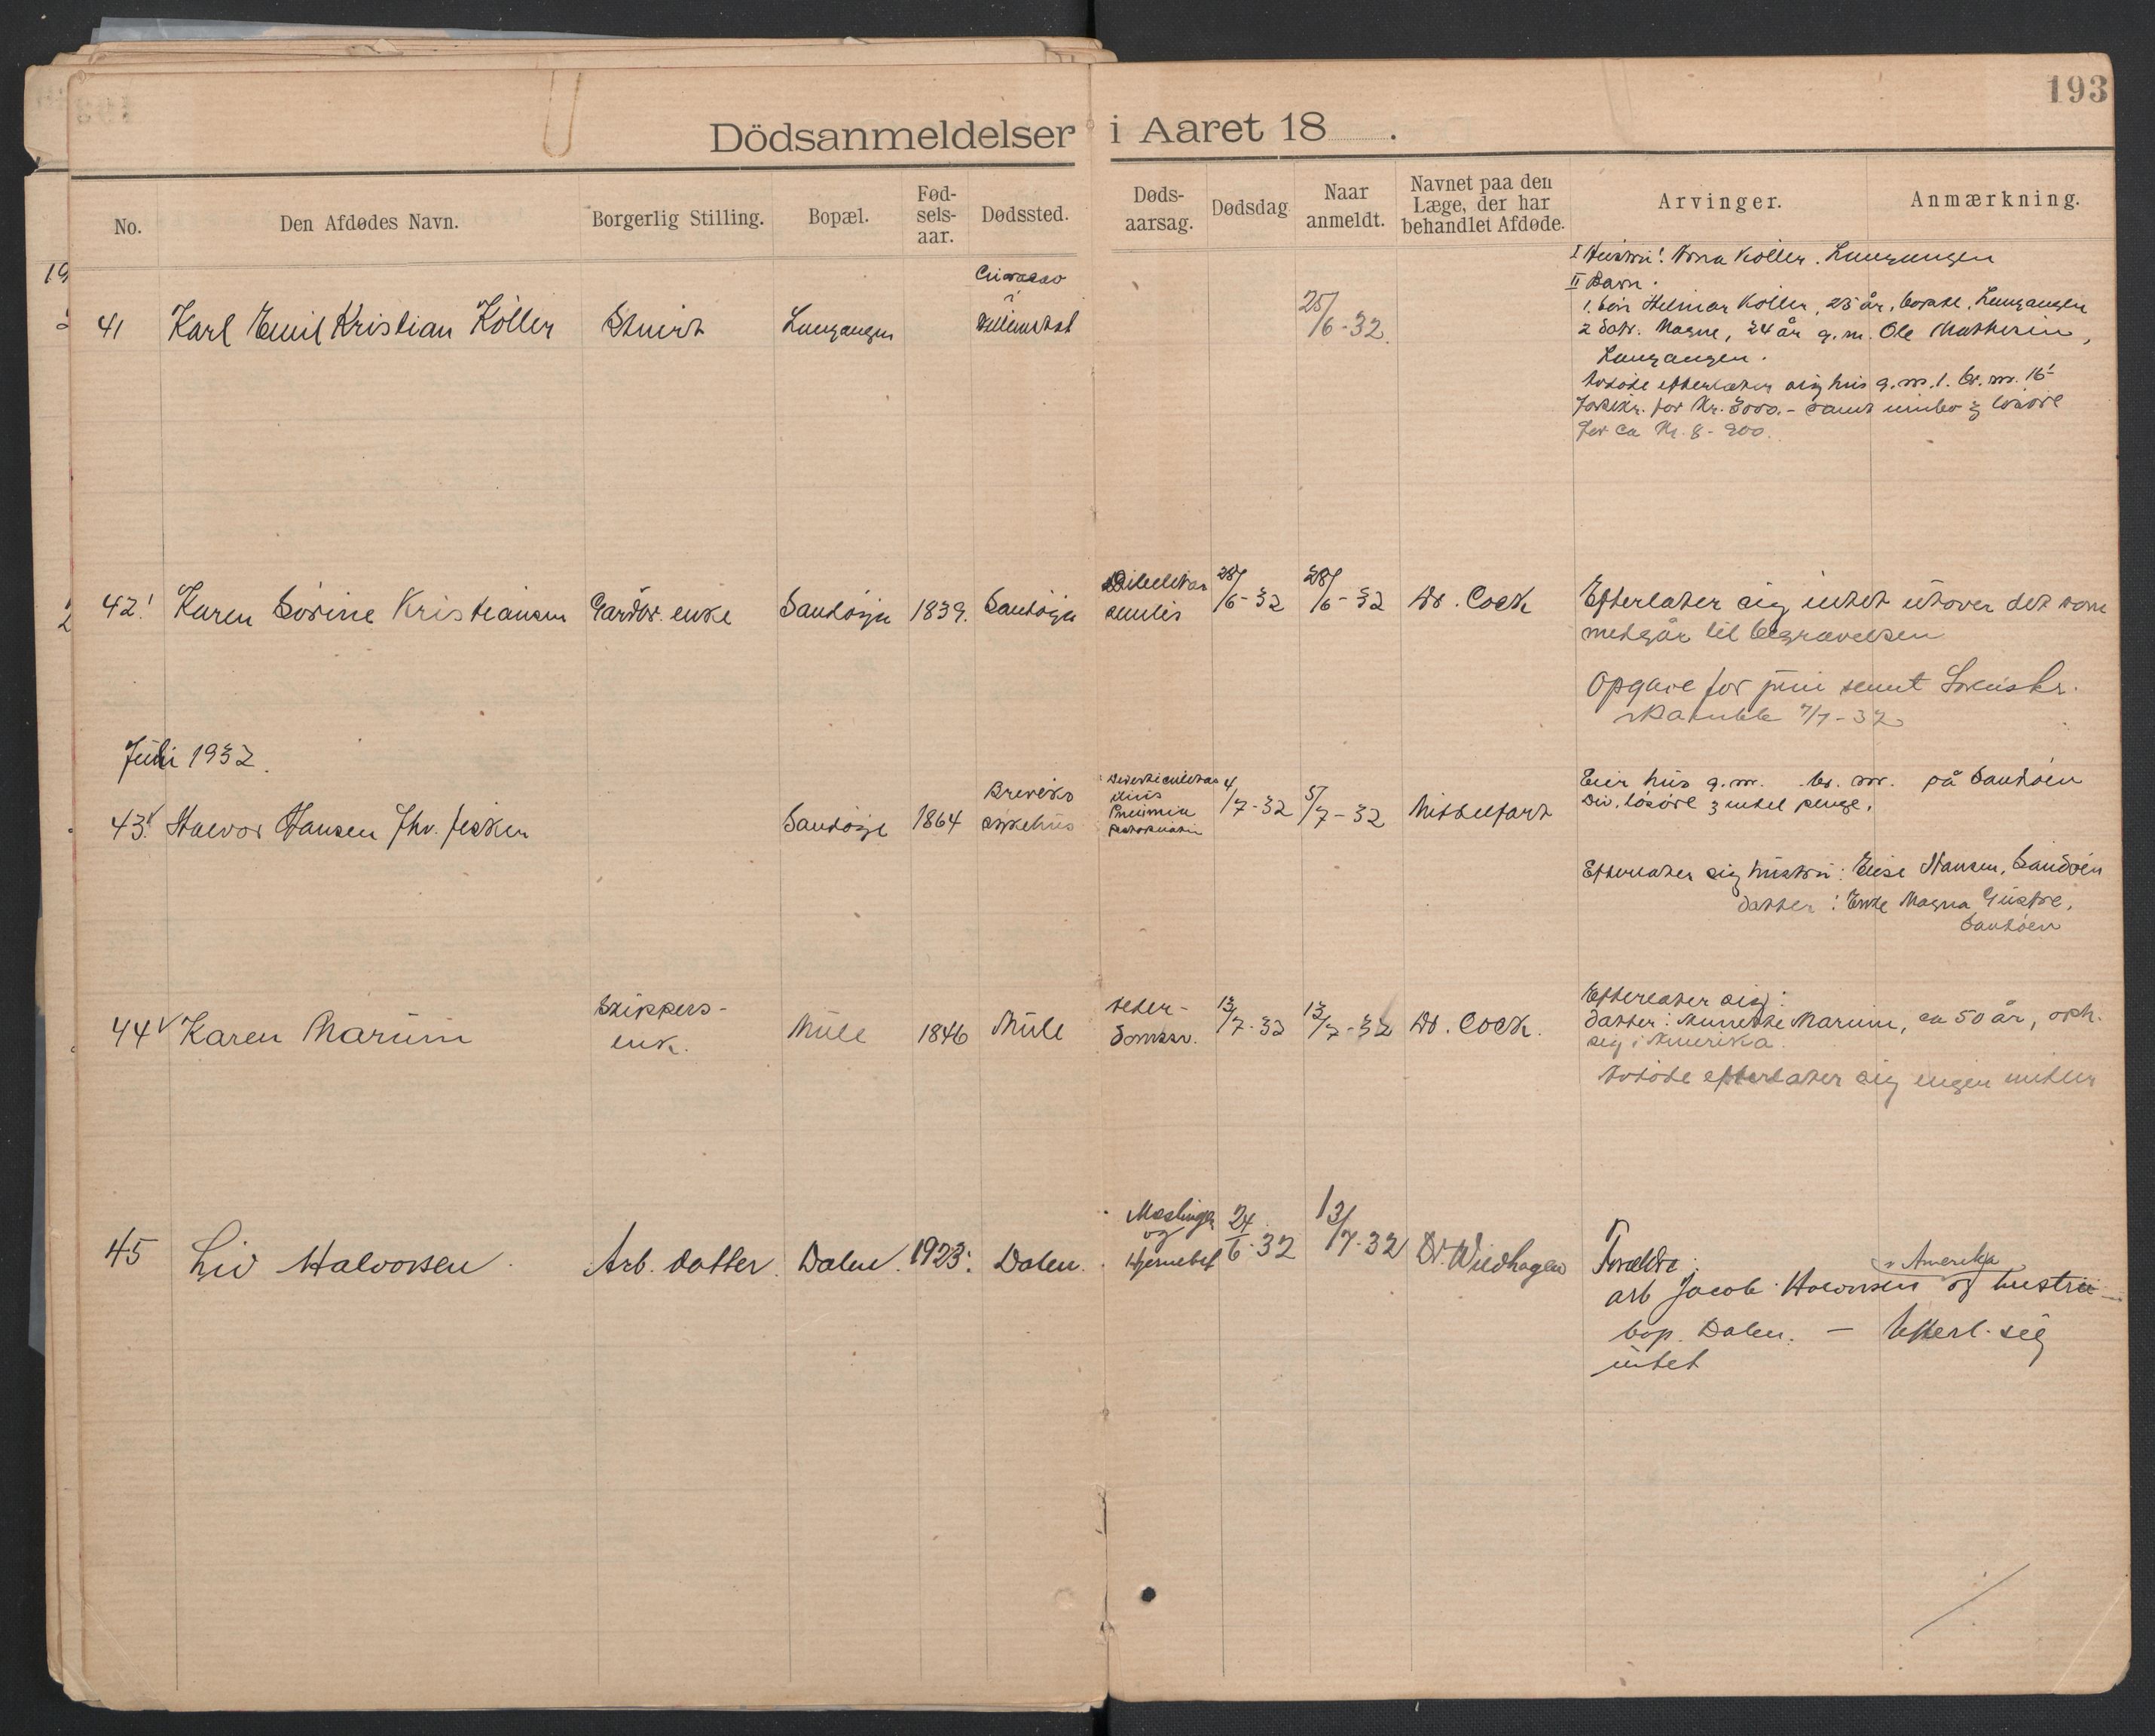 193
Dödsanmeldelser i Aaret 18 .
No.
Den Afdødes Navn.
Borgerlig Stilling.
Bopæl.
Fød-
sels-
aar.
Dødssted.
Døds-
aarsag.
Dødsdag
Naar
anmeldt.
Navnet paa den
Læge, der har
behandlet Afdøde.
Arvinger.
Anmærkning.
41
Karl Emil Kristian Köller
Stuert
Langangen
Curacao
i
Willemstad
25/6-32.
I Hustru: Anna Köller. Langangen
II Barn.
1. Sön Helmar Köller, 25 år, bosatt. Langangen
2 Datr. Magne, 24 år g.m. Ole Mathisen,
Langangen.
Avdöde efterlater sig hus g.nr. 1. br. nr. 16
forsikr. for Kr. 3000.- samt innbo & lösöre
for ca Kr. 8-900.
42!
Karen Sörine Kristiansen
Gårdbr. enke
Sandöya
1839.
Sandöya
senilis
28/6-32
28/6-32
Dr. Cock
Efterlater sig intet utover det som
medgår til begravelsen
Opgave for juni sendt Lensm.
Bamble 7/7-32
Juli 1932.
43!
Halvor Hansen fhv. fisker
Sandöya
1864
Breviks
sykehus
Pneumia
4/7-32
5/7-32
Middelfart
Eier hus g.nr. br. nr. på Sandöen
Div. lösöre & intet penge.
Efterlater sig hustru: Elise Hansen, Sandöen
Datter: Enke Magna Gustve,
Sandöen
44
Karen Marum
Skippers-
enk.
Mule
1846
Mule
Alder-
domssv.
13/7-32
13/7-32
Dr. Cock.
Efterlater sig:
Datter: Annette Marum, ca 50 år, oph.
sig i Amerika.
Avdöde efterlater sig ingen midler
45
Liv Halvorsen
Arb. datter.
Dalen.
1923.
Dalen.
Meslinger
og
Hjernebet
24/6-32
13/7-32
Dr. Wildhagen
Foreldre:
i Amerika
arb Jacob Halvorsen og hustru
bop. Dalen. — Efterl. sig
intet